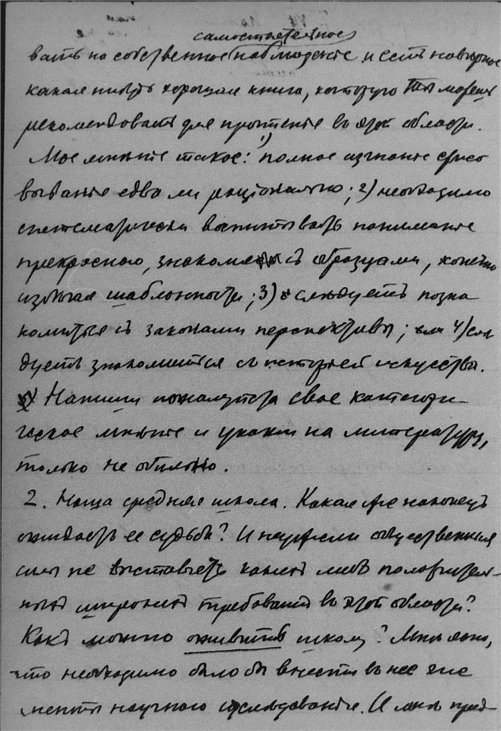 самостоятельное
вать на собственное наблюденiе и есть наверное
какая нибудь хорошая книга, которую Ты можешь
рекомендовать для прочтенiя въ этой области.
Мое мнѣнiе такое: 1) полное изгнанiе срисо
выванiя едва ли рацiонально; 2) необходимо
систематически воспитывать пониманiе
прекраснаго, знакомя съ образцами, конечно
избѣгая шаблонности; 3) слѣдуетъ позна
комиться съ законами перспективы; 4) слѣ
дуетъ знакомиться съ исторiей искусства.
Напиши пожалуйста свое категори
ческое мнѣнiе и укажи на литературу,
только не обильно.
2. Наша средняя школа. Какая же наконецъ
ожидаетъ ее судьба? И неужели общественныя
силы не выставятъ какихъ либо положитель
ныхъ широкихъ требованiй въ этой области?
Какъ можно оживить школу? Мнѣ ясно,
что необходимо было бы внести въ нее эле
менты научного изслѣдованiя. И мнѣ пред